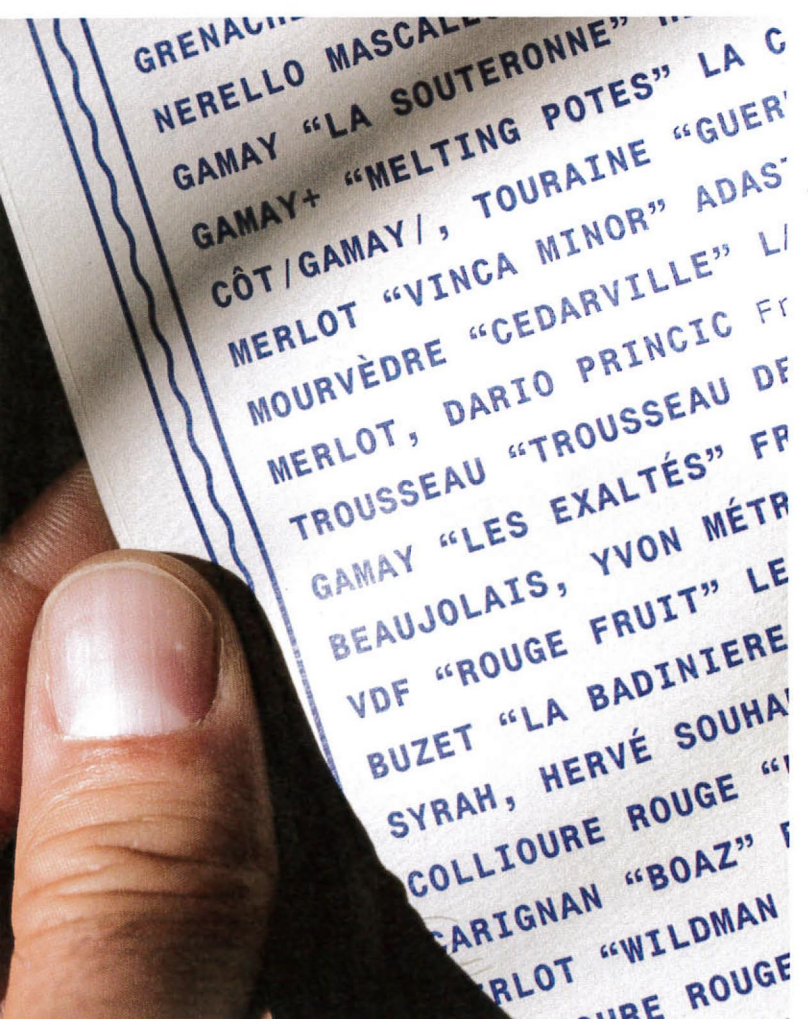 NERELLO
GAMAY “LA SOUTERONNE”
GAMAY+ “MELTING POTES” LA
CÔT/GAMAY/, TOURAINE
MERLOT “VINCA MINOR”
MOURVÈDRE “CEDARVILLE”
MERLOT, DARIO PRINCIC
TROUSSEAU “TROUSSEAU
GAMAY “LES EXALTÉS”
BEAUJOLAIS, YVON
VDF “ROUGE FRUIT”
BUZET “LA BADINIERE
SYRAH, HERVÉ
COLLIOURE ROUGE
CARIGNAN “BOAZ”
“WILDMAN
ROUGE